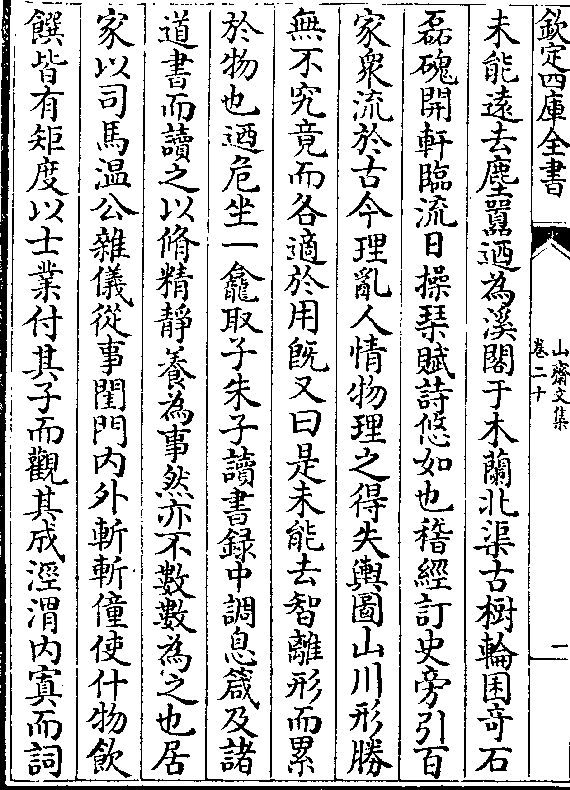 欽定四庫全書
山齋文集
卷二十
二
未能遠去塵囂迺為溪閣于木蘭北渠古樹輪囷奇石
磊磈開軒臨流日操琴賦詩悠如也稽經訂史旁引百
家衆流於古今理亂人情物理之得失輿圖山川形勝
無不究竟而各適於用既又曰是未能去智離形而累
於物也迺危坐一龕取子朱子讀書録中調息箴及諸
道書而讀之以脩精靜養為事然亦不數數為之也居
家以司馬温公雜儀從事閨門内外斬斬僮使什物飲
饌皆有矩度以士業付其子而觀其成涇渭内寘而詞